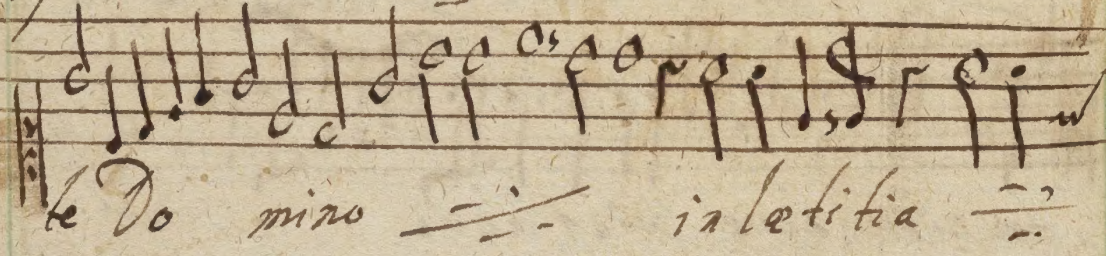 te Do mino in lætitia